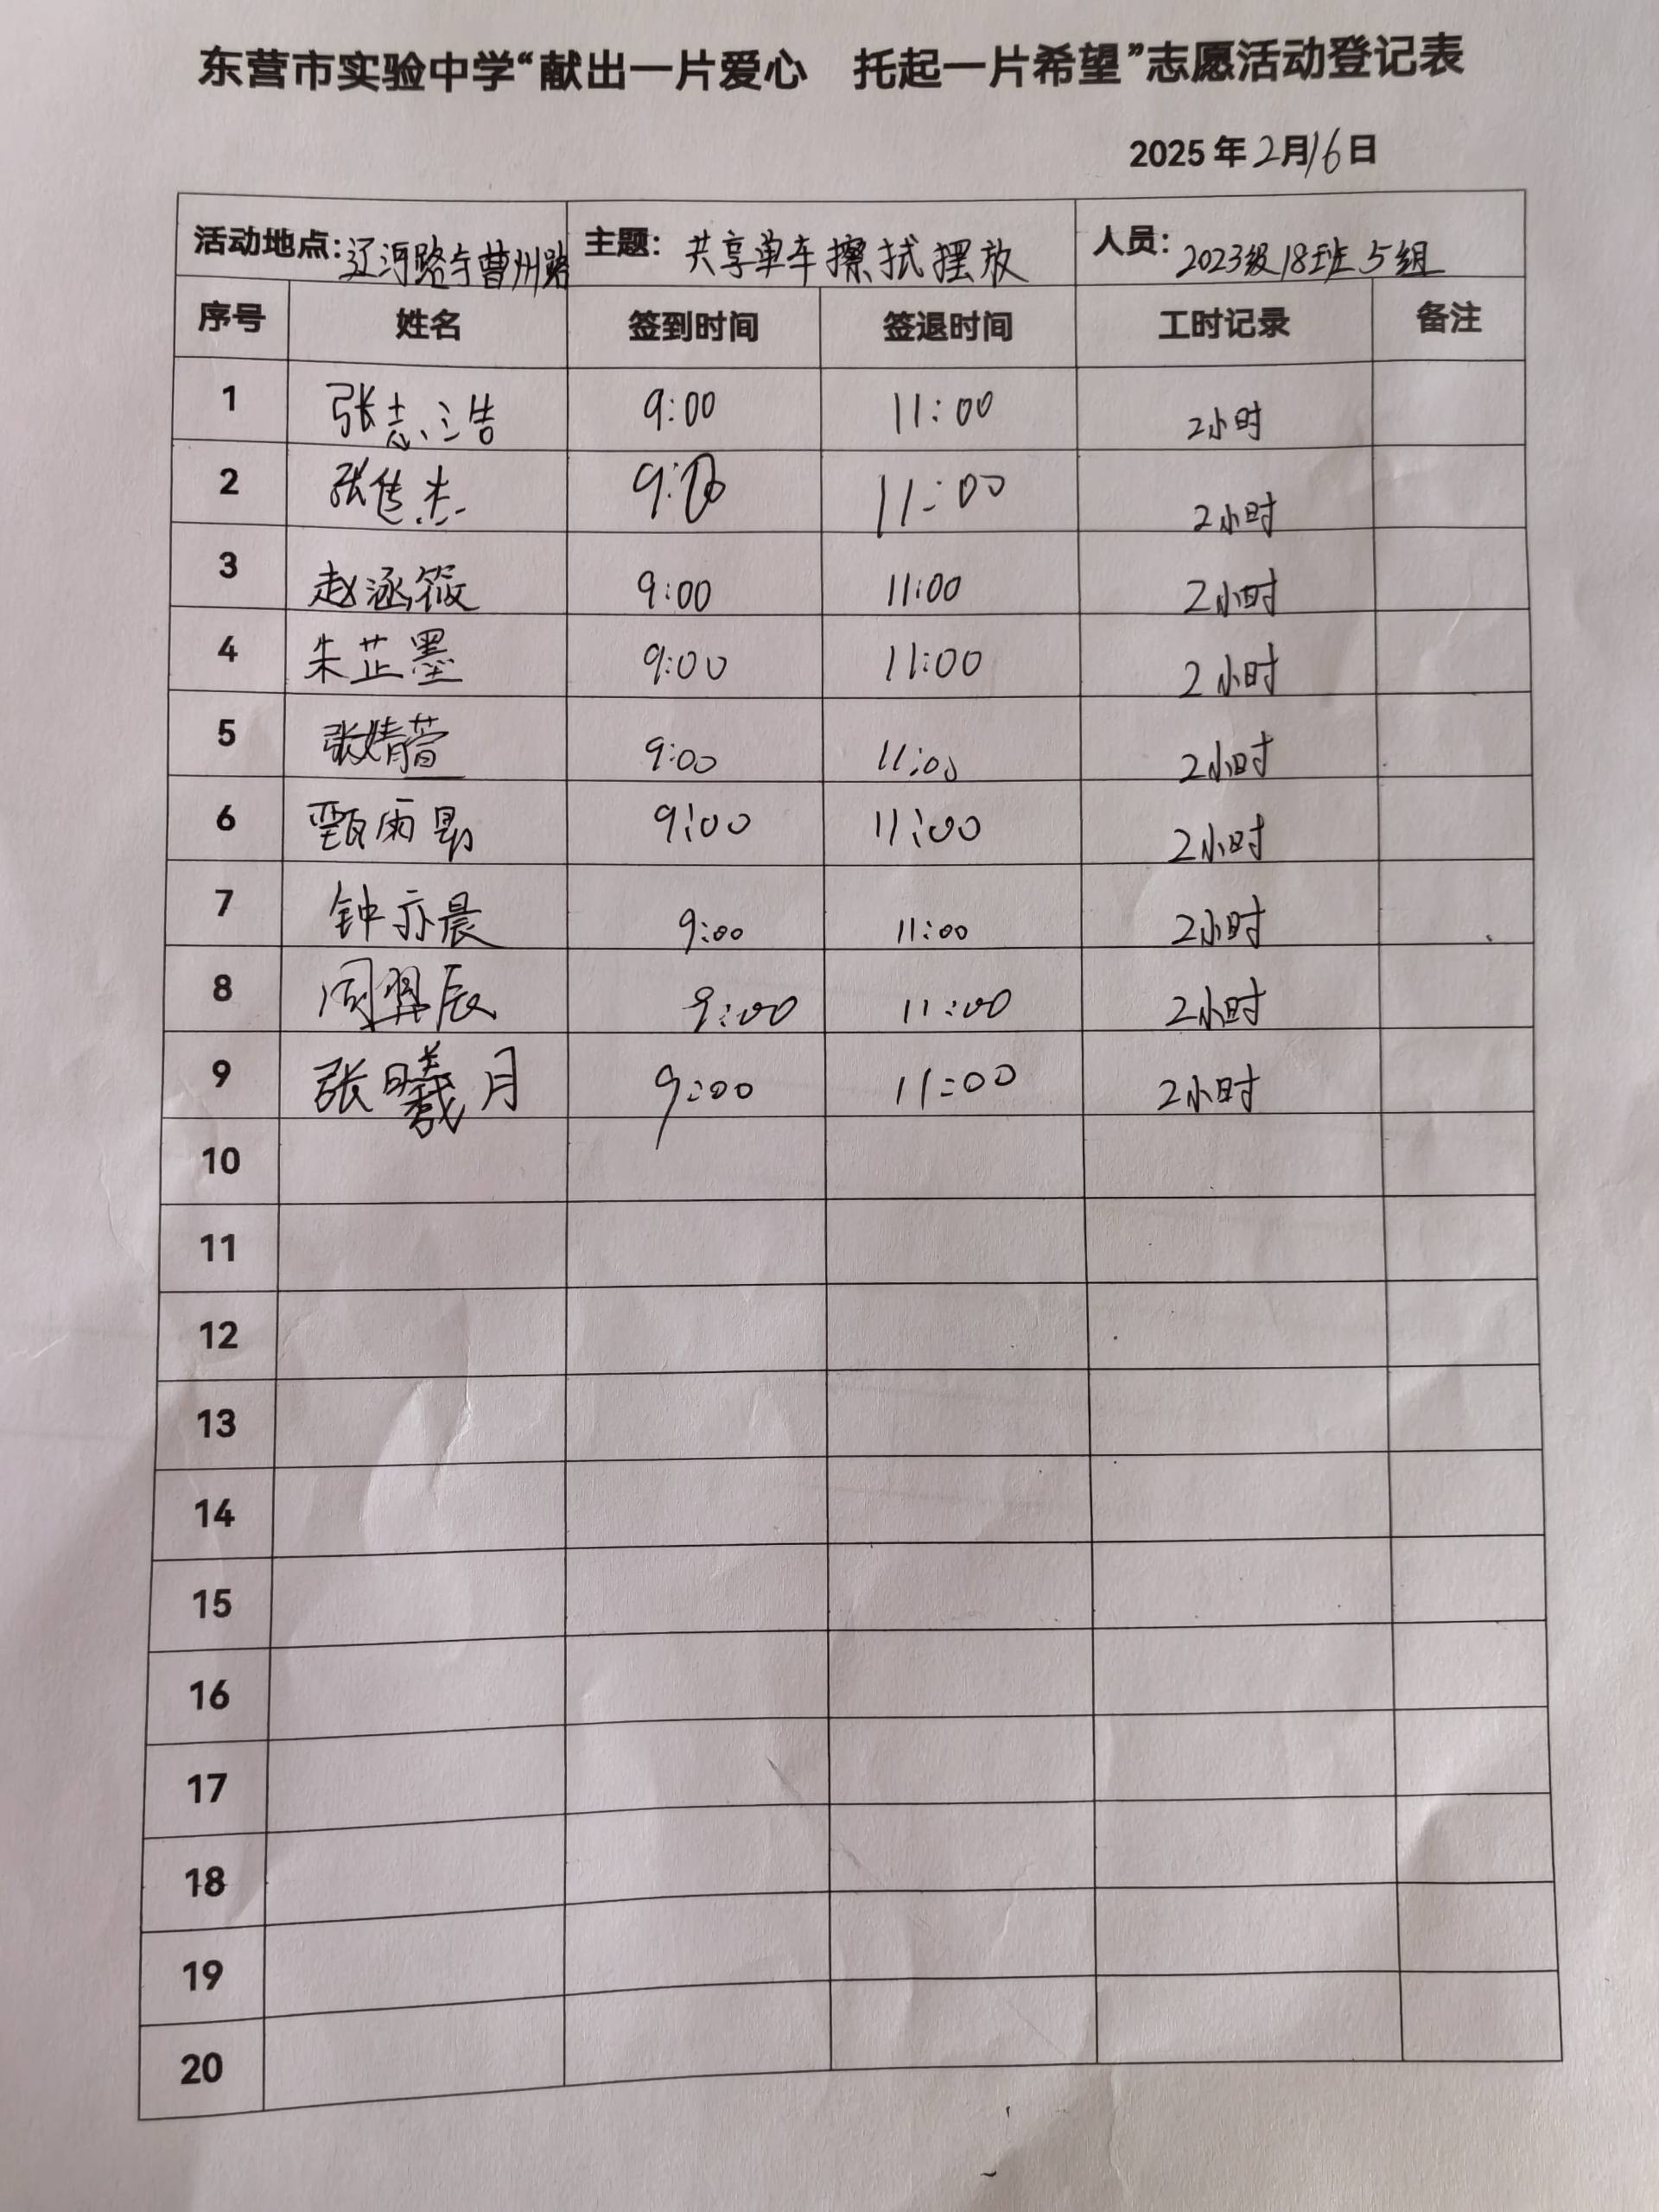 东营市实验中学“献出一片爱心 托起一片希望”志愿活动登记表
2025年2月16日
活动地点:辽河路与曹州路 主题: 共享单车擦拭摆放 人员: 2023级18班5组
序号 姓名 签到时间 签退时间 工时记录 备注
1 张志浩 9:00 11:00 2小时
2 张传杰 9:00 11:00 2小时
3 赵涵筱 9:00 11:00 2小时
4 朱芷墨 9:00 11:00 2小时
5 张婧蕾 9:00 11:00 2小时
6 甄雨 9:00 11:00 2小时
7 钟亦晨 9:00 11:00 2小时
8 周羿辰 9:00 11:00 2小时
9 张曦月 9:00 11:00 2小时
10
11
12
13
14
15
16
17
18
19
20